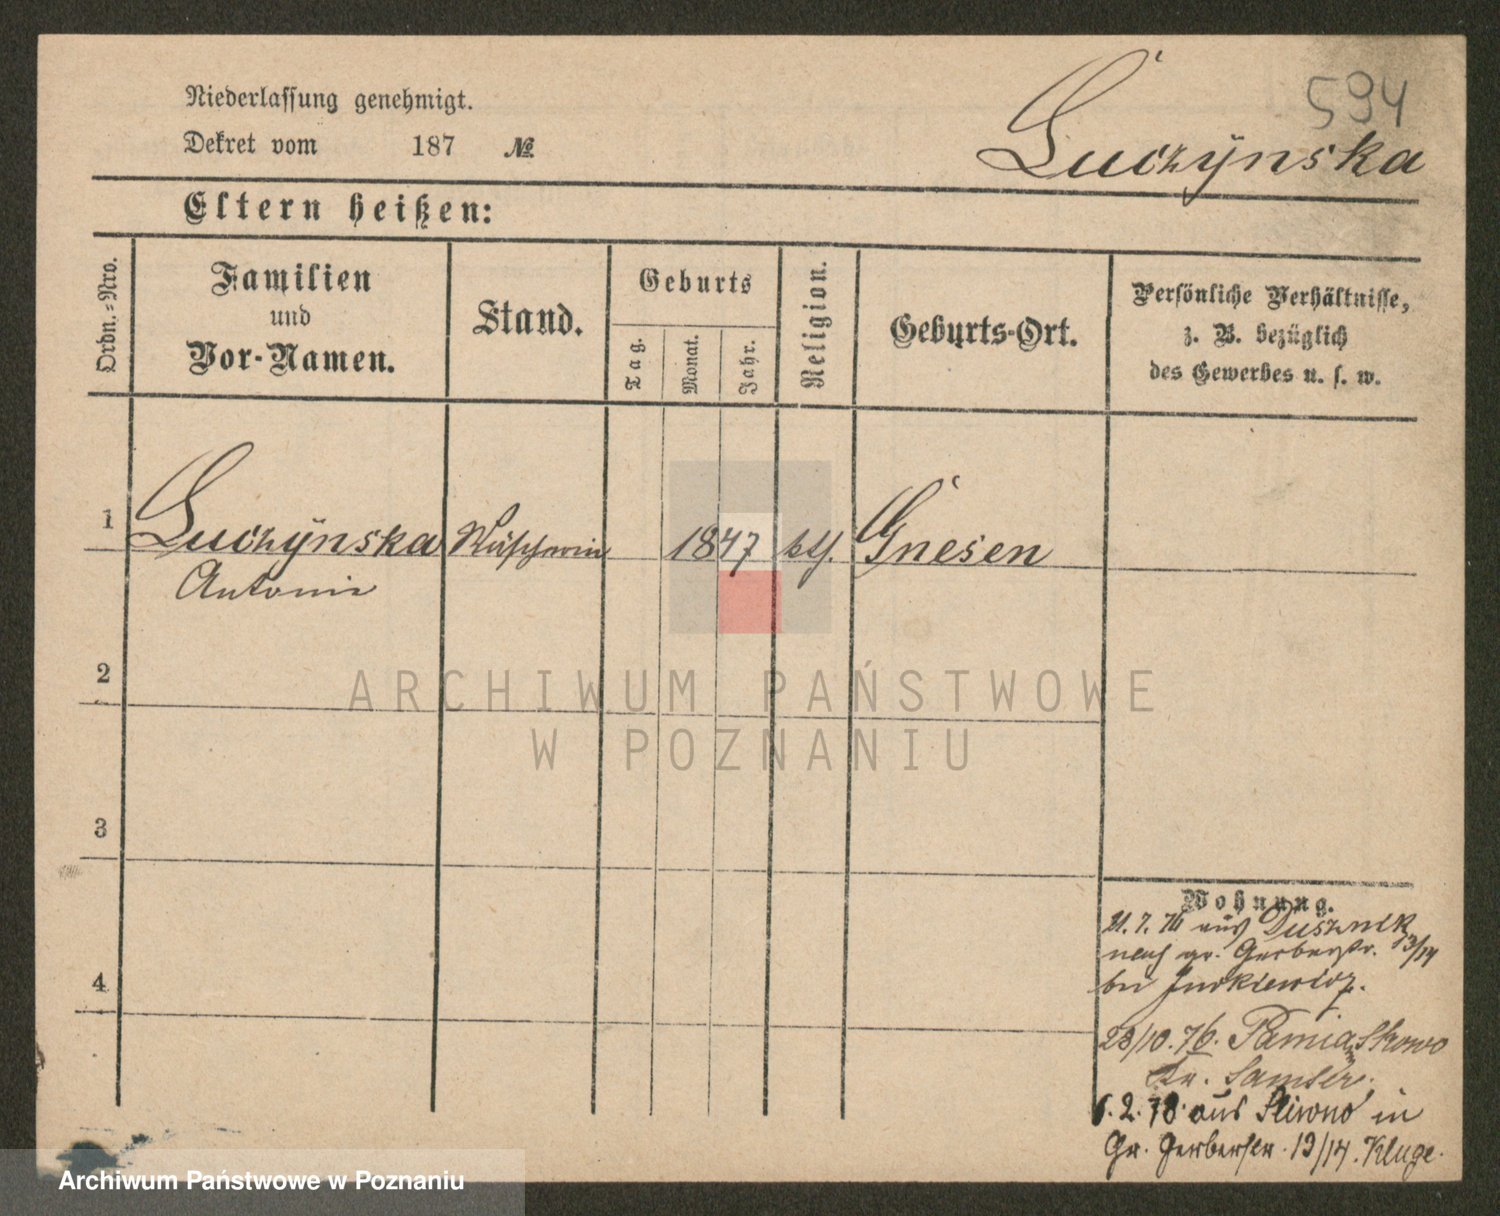 594
Niederlassung genehmigt.
Dekret vom 187 №
Luczÿnska
Eltern heißen:
Ordn.-Nro.
Familien und Vor-Namen.
Stand.
Geburts
Tag.
Monat.
Jahr.
Religion.
Geburts-Ort.
Persönliche Verhältnisse,
z. B. bezüglich
des Gewerbes u. s. w.
1 Luczÿnska 1847 kth. Gnesen
Antonie
2
3
4
Wohnung.
21. 7. 76 aus Dusznik
nach gr. Gerberstr. 13/14
bei
28/10. 76. Pamiątkowo
Kr. Samter.
6. 2. 78 aus Sliwno in
Gr. Gerberstr. 13/14. Kluge.
ARCHIWUM PAŃSTWOWE
W POZNANIU
Archiwum Państwowe w Poznaniu